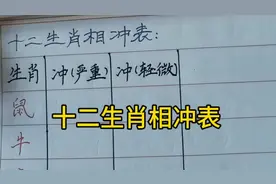 十二生肖相冲表:
生肖 冲(严重) 冲(轻微)
鼠
十二生肖相冲表
牛